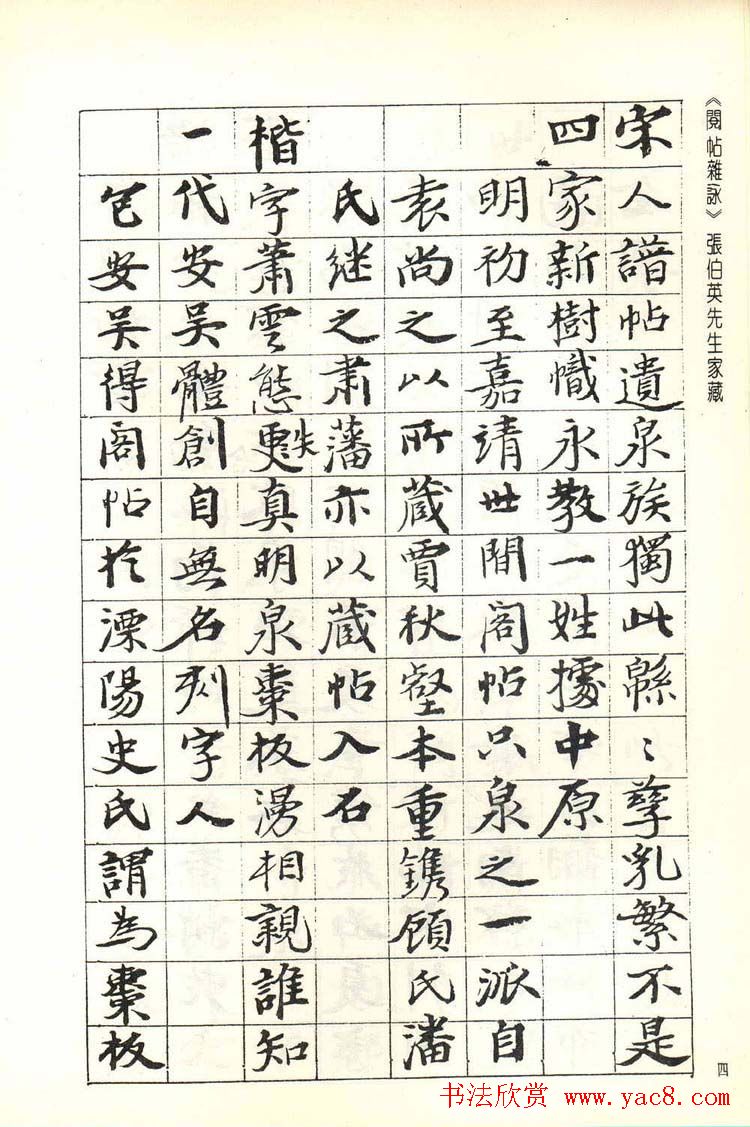 《閱帖雜詠》張伯英先生家藏
宋人譜帖遺泉族獨此緜〻孳乳繁不是
四家新樹幟永教一姓據中原
明初至嘉靖世間閣帖只泉之一派自
袁尚之以所藏賈秋壑本重鐫顧氏潘
氏继之肅藩亦以藏帖入石
楷字蕭雲態更失真明泉棗板漫相親誰知
一代安吴體創自無名刻字人
包安吴得閣帖於溧陽史氏謂為棗板
四
书法欣赏 www.yac8.com